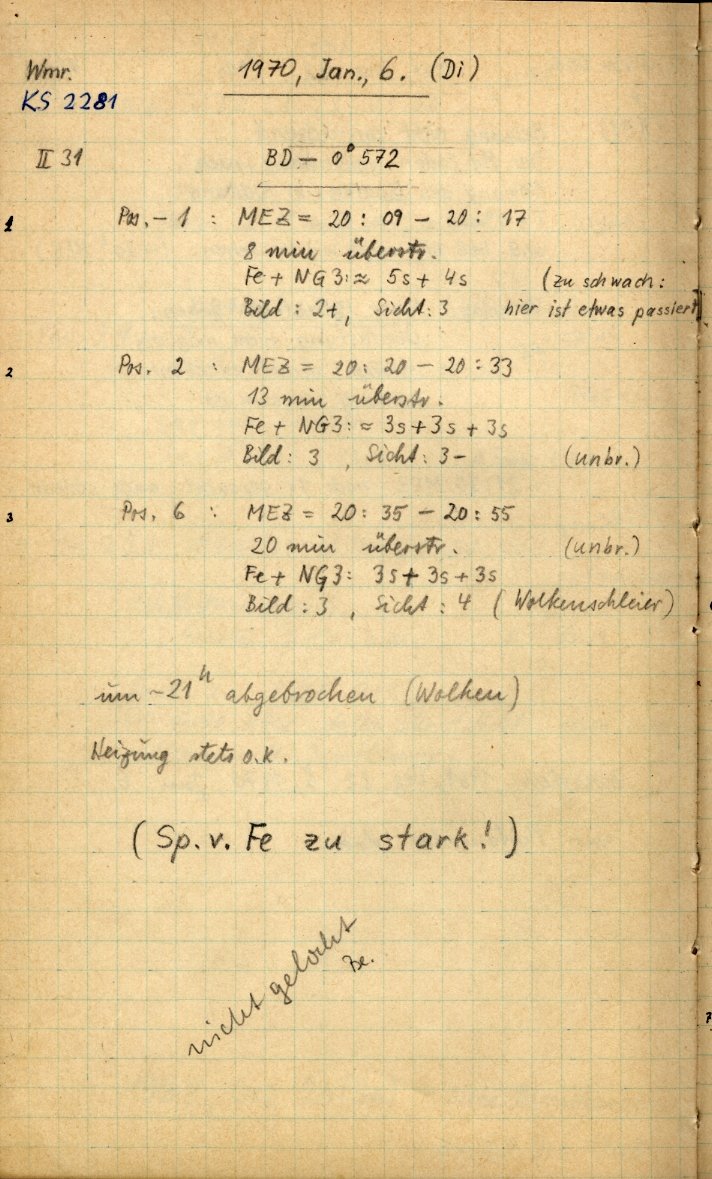 Wmr. 1970, Jan., 6. (Di)
KS 2281
II 31 BD - 0° 572
1 Pos. - 1 : MEZ = 20 : 09 - 20 : 17
8 min überstr.
Fe + NG3: ≈ 5s + 4s (zu schwach:
Bild : 2+, Sicht: 3 hier ist etwas passiert)
2 Pos. 2 : MEZ = 20 : 20 - 20 : 33
13 min überstr.
Fe + NG3: ≈ 3s + 3s + 3s
Bild : 3 , Sicht : 3- (unbr.)
3 Pos. 6 : MEZ = 20 : 35 - 20 : 55
20 min überstr. (unbr.)
Fe + NG3: 3s + 3s + 3s
Bild : 3 , Sicht : 4 (Wolkenschleier)
um ~21h abgebrochen (Wolken)
Heizung stets o.k.
(Sp. v. Fe zu stark!)
nicht gelocht